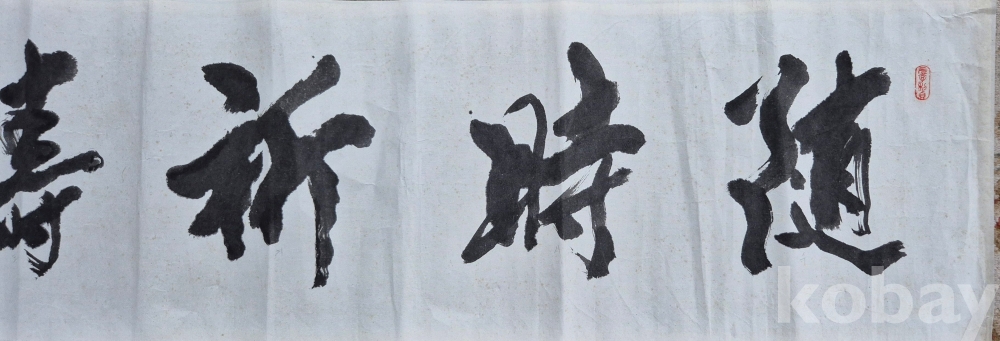 隨時祈壽
kobay